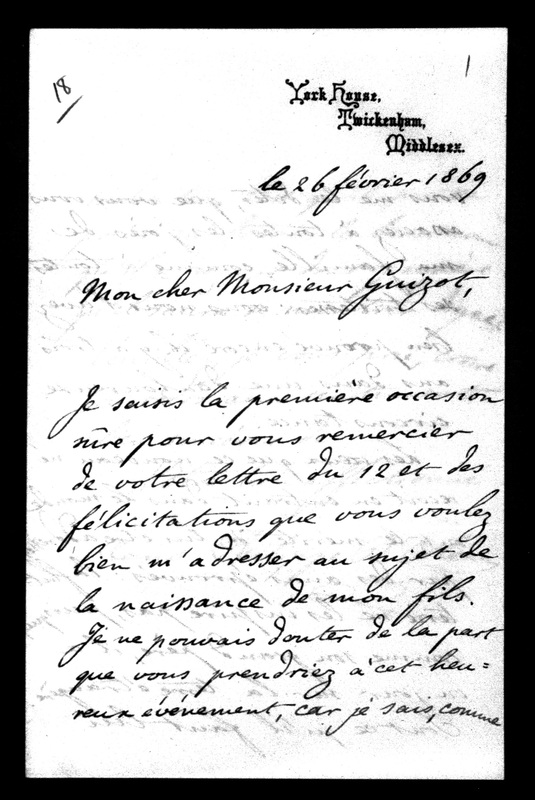 18
1
York House,
Twickenham,
Middlesex.
le 26 février 1869
Mon cher Monsieur Guizot,
Je saisis la première occasion
sûre pour vous remercier
de votre lettre du 12 et des
félicitations que vous voulez
bien m'adresser au sujet de
la naissance de mon fils.
Je ne pouvais douter de la part
que vous prendriez à cet heu=
reux événement, car je sais, comme